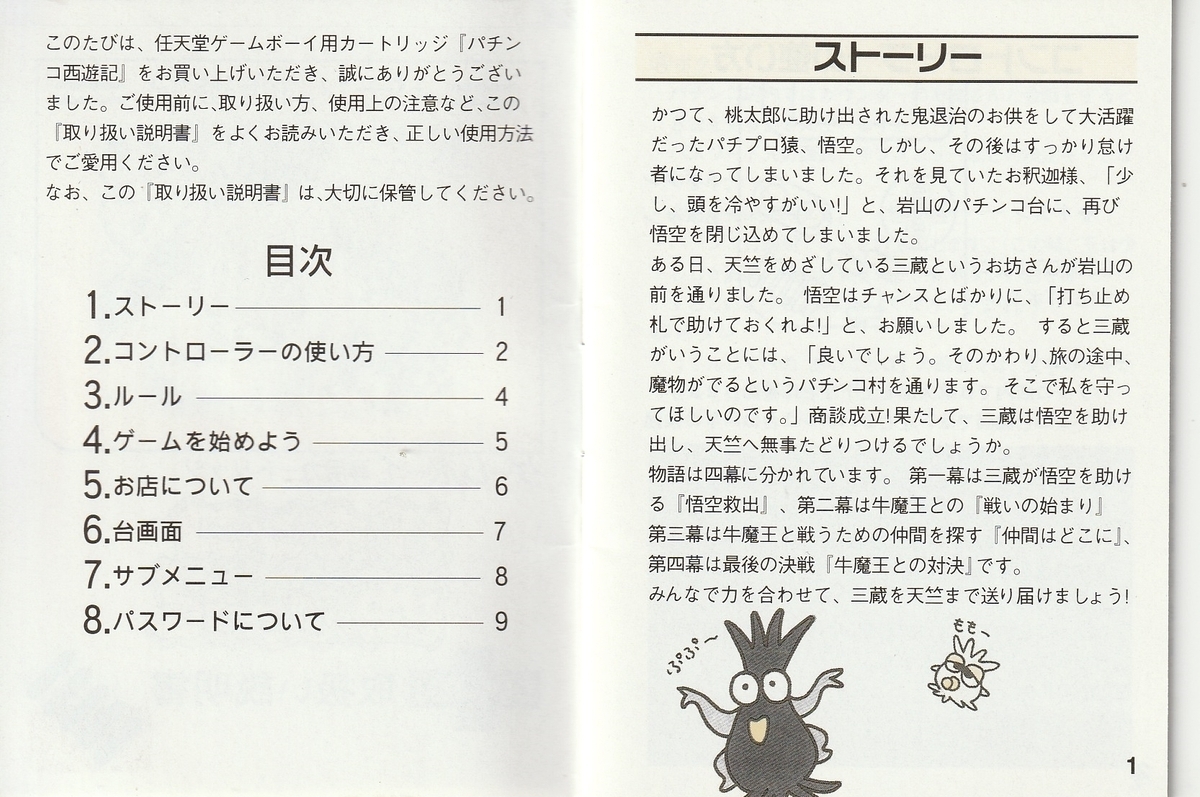 このたびは、任天堂ゲームボーイ用カートリッジ『パチン
コ西遊記』をお買い上げいただき、誠にありがとうござい
ました。ご使用前に、取り扱い方、使用上の注意など、この
『取り扱い説明書』をよくお読みいただき、正しい使用方法
でご愛用ください。
なお、この『取り扱い説明書』は、大切に保管してください。
目次
1.ストーリー 1
2.コントローラーの使い方 2
3.ルール 4
4.ゲームを始めよう 5
5.お店について 6
6.台画面 7
7.サブメニュー 8
8.パスワードについて 9
ストーリー
かつて、桃太郎に助け出された鬼退治のお供をして大活躍
だったパチプロ猿、悟空。しかし、その後はすっかり怠け
者になってしまいました。それを見ていたお釈迦様、「少
し、頭を冷やすがいい!」と、岩山のパチンコ台に、再び
悟空を閉じ込めてしまいました。
ある日、天竺をめざしている三蔵というお坊さんが岩山の
前を通りました。 悟空はチャンスとばかりに、「打ち止め
札で助けておくれよ!」と、お願いしました。 すると三蔵
がいうことには、「良いでしょう。そのかわり、旅の途中、
魔物がでるというパチンコ村を通ります。そこで私を守っ
てほしいのです。」商談成立!果たして、三蔵は悟空を助け
出し、天竺へ無事たどりつけるでしょうか。
物語は四幕に分かれています。 第一幕は三蔵が悟空を助け
る『悟空救出』、第二幕は牛魔王との『戦いの始まり』
第三幕は牛魔王と戦うための仲間を探す『仲間はどこに』、
第四幕は最後の決戦『牛魔王との対決』です。
みんなで力を合わせて、三蔵を天竺まで送り届けましょう!
ぷぷぷ〜
もも〜
1